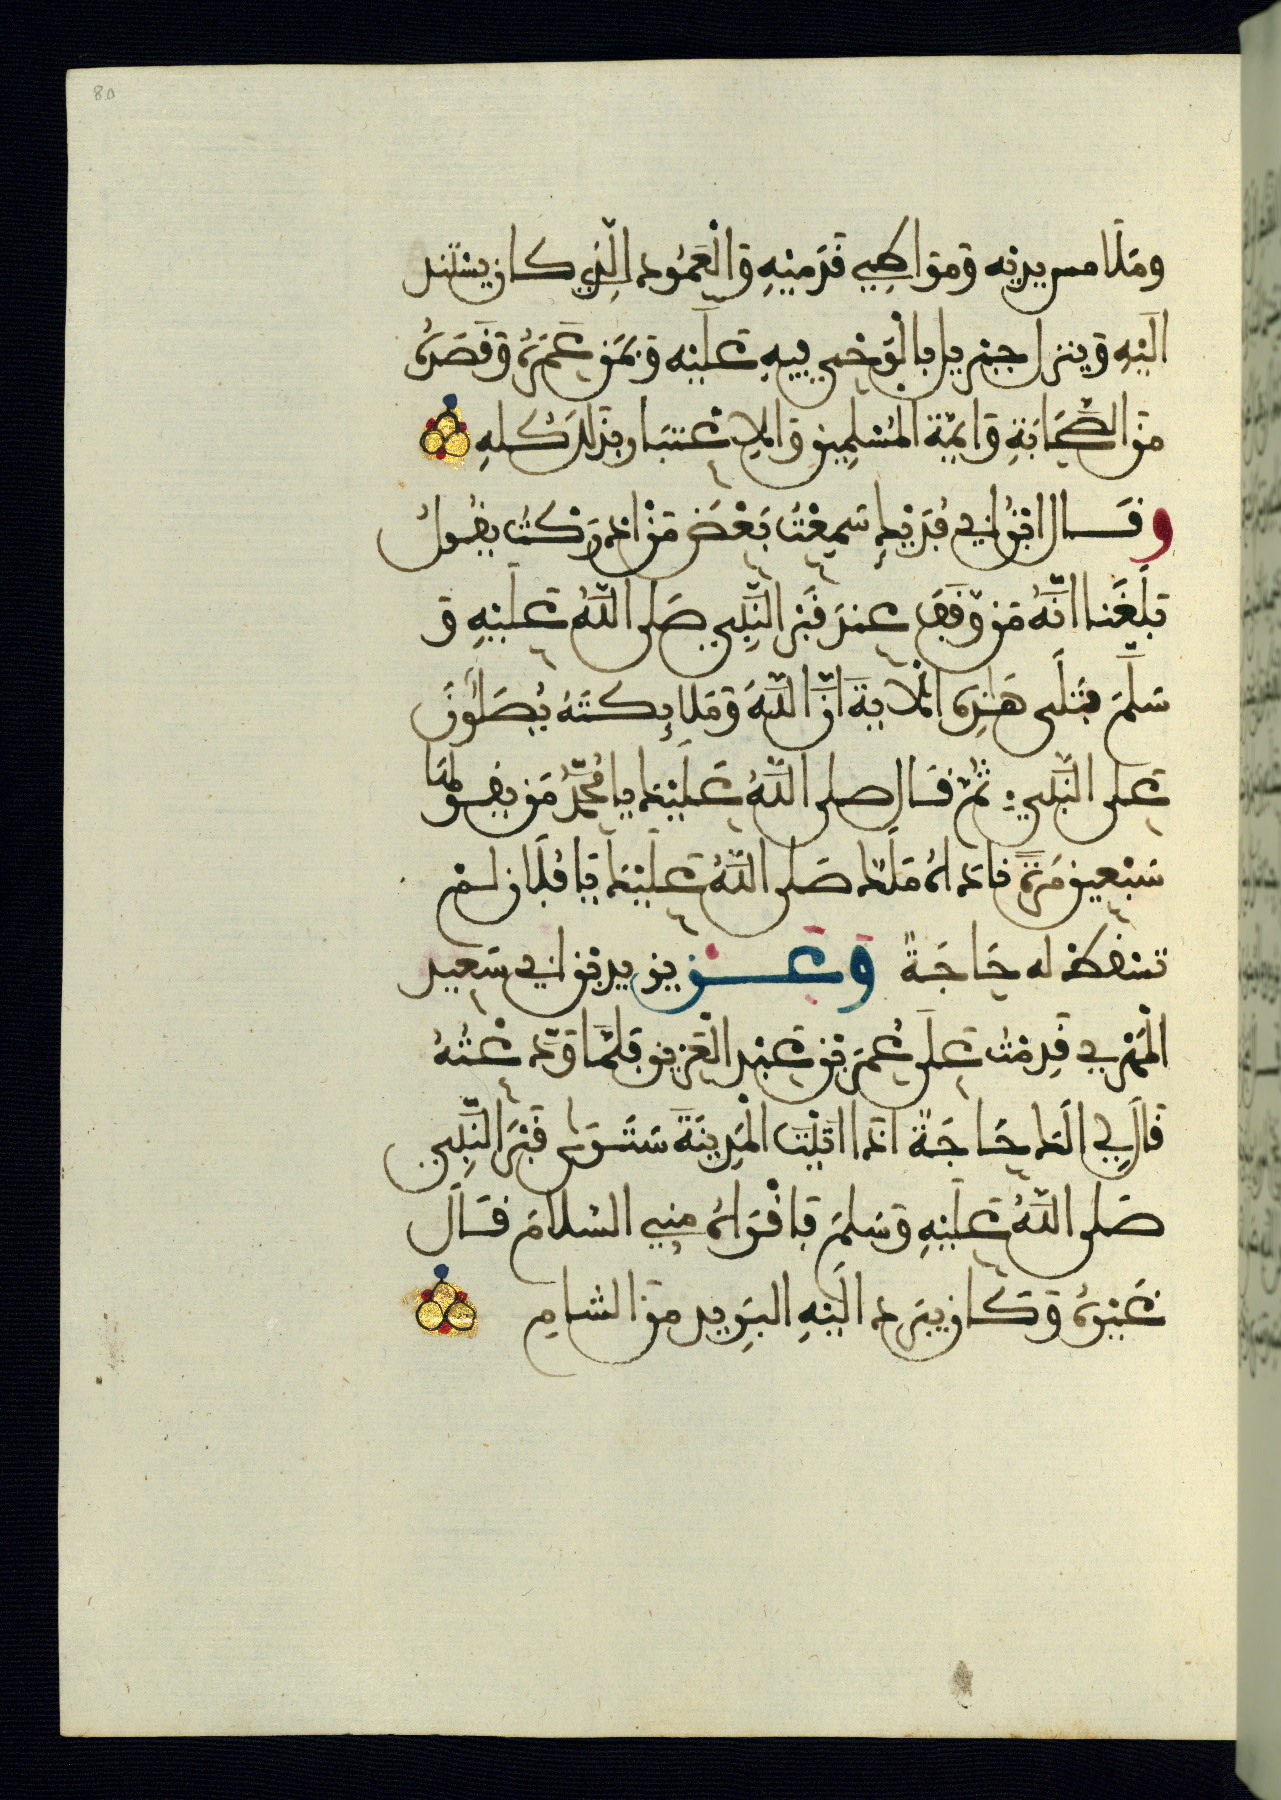 80
وملامس يديه ومواطئ قدميه والعمود الذي كان يستند
اليه وينزل جبريل بالوحي فيه عليه وبمن عمره وقصده
من الصحابة وايمة المسلمين والاعتبار بذلك كله
وقال ابن ابي فديك سمعت بعض من ادركت يقول
بلغنا انه من وقف عند قبر النبي صلى الله عليه و
سلم فتلى هذه الاية ان الله وملايكته يصلون
على النبي ثم قال صلى الله عليك يا محمد من يقولها
سبعين مرة ناداه ملك صلى الله عليك يا فلان لم
تسقط له حاجة وعن يزيد بن ابي سعيد
المهري قدمت على عمر بن عبد العزيز فلما ودعته
قال لي اليك حاجة اذا اتيت المدينة سترى قبر النبي
صلى الله عليه وسلم فاقراه مني السلام قال
غيره وكان يبرد اليه البريد من الشام